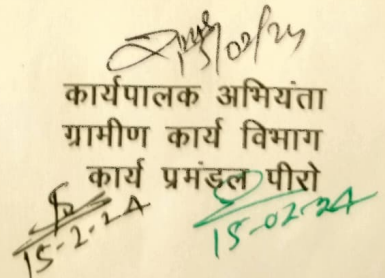 15/02/24
कार्यपालक अभियंता
ग्रामीण कार्य विभाग
कार्य प्रमंडल पीरो
15-2-24
15-02-24